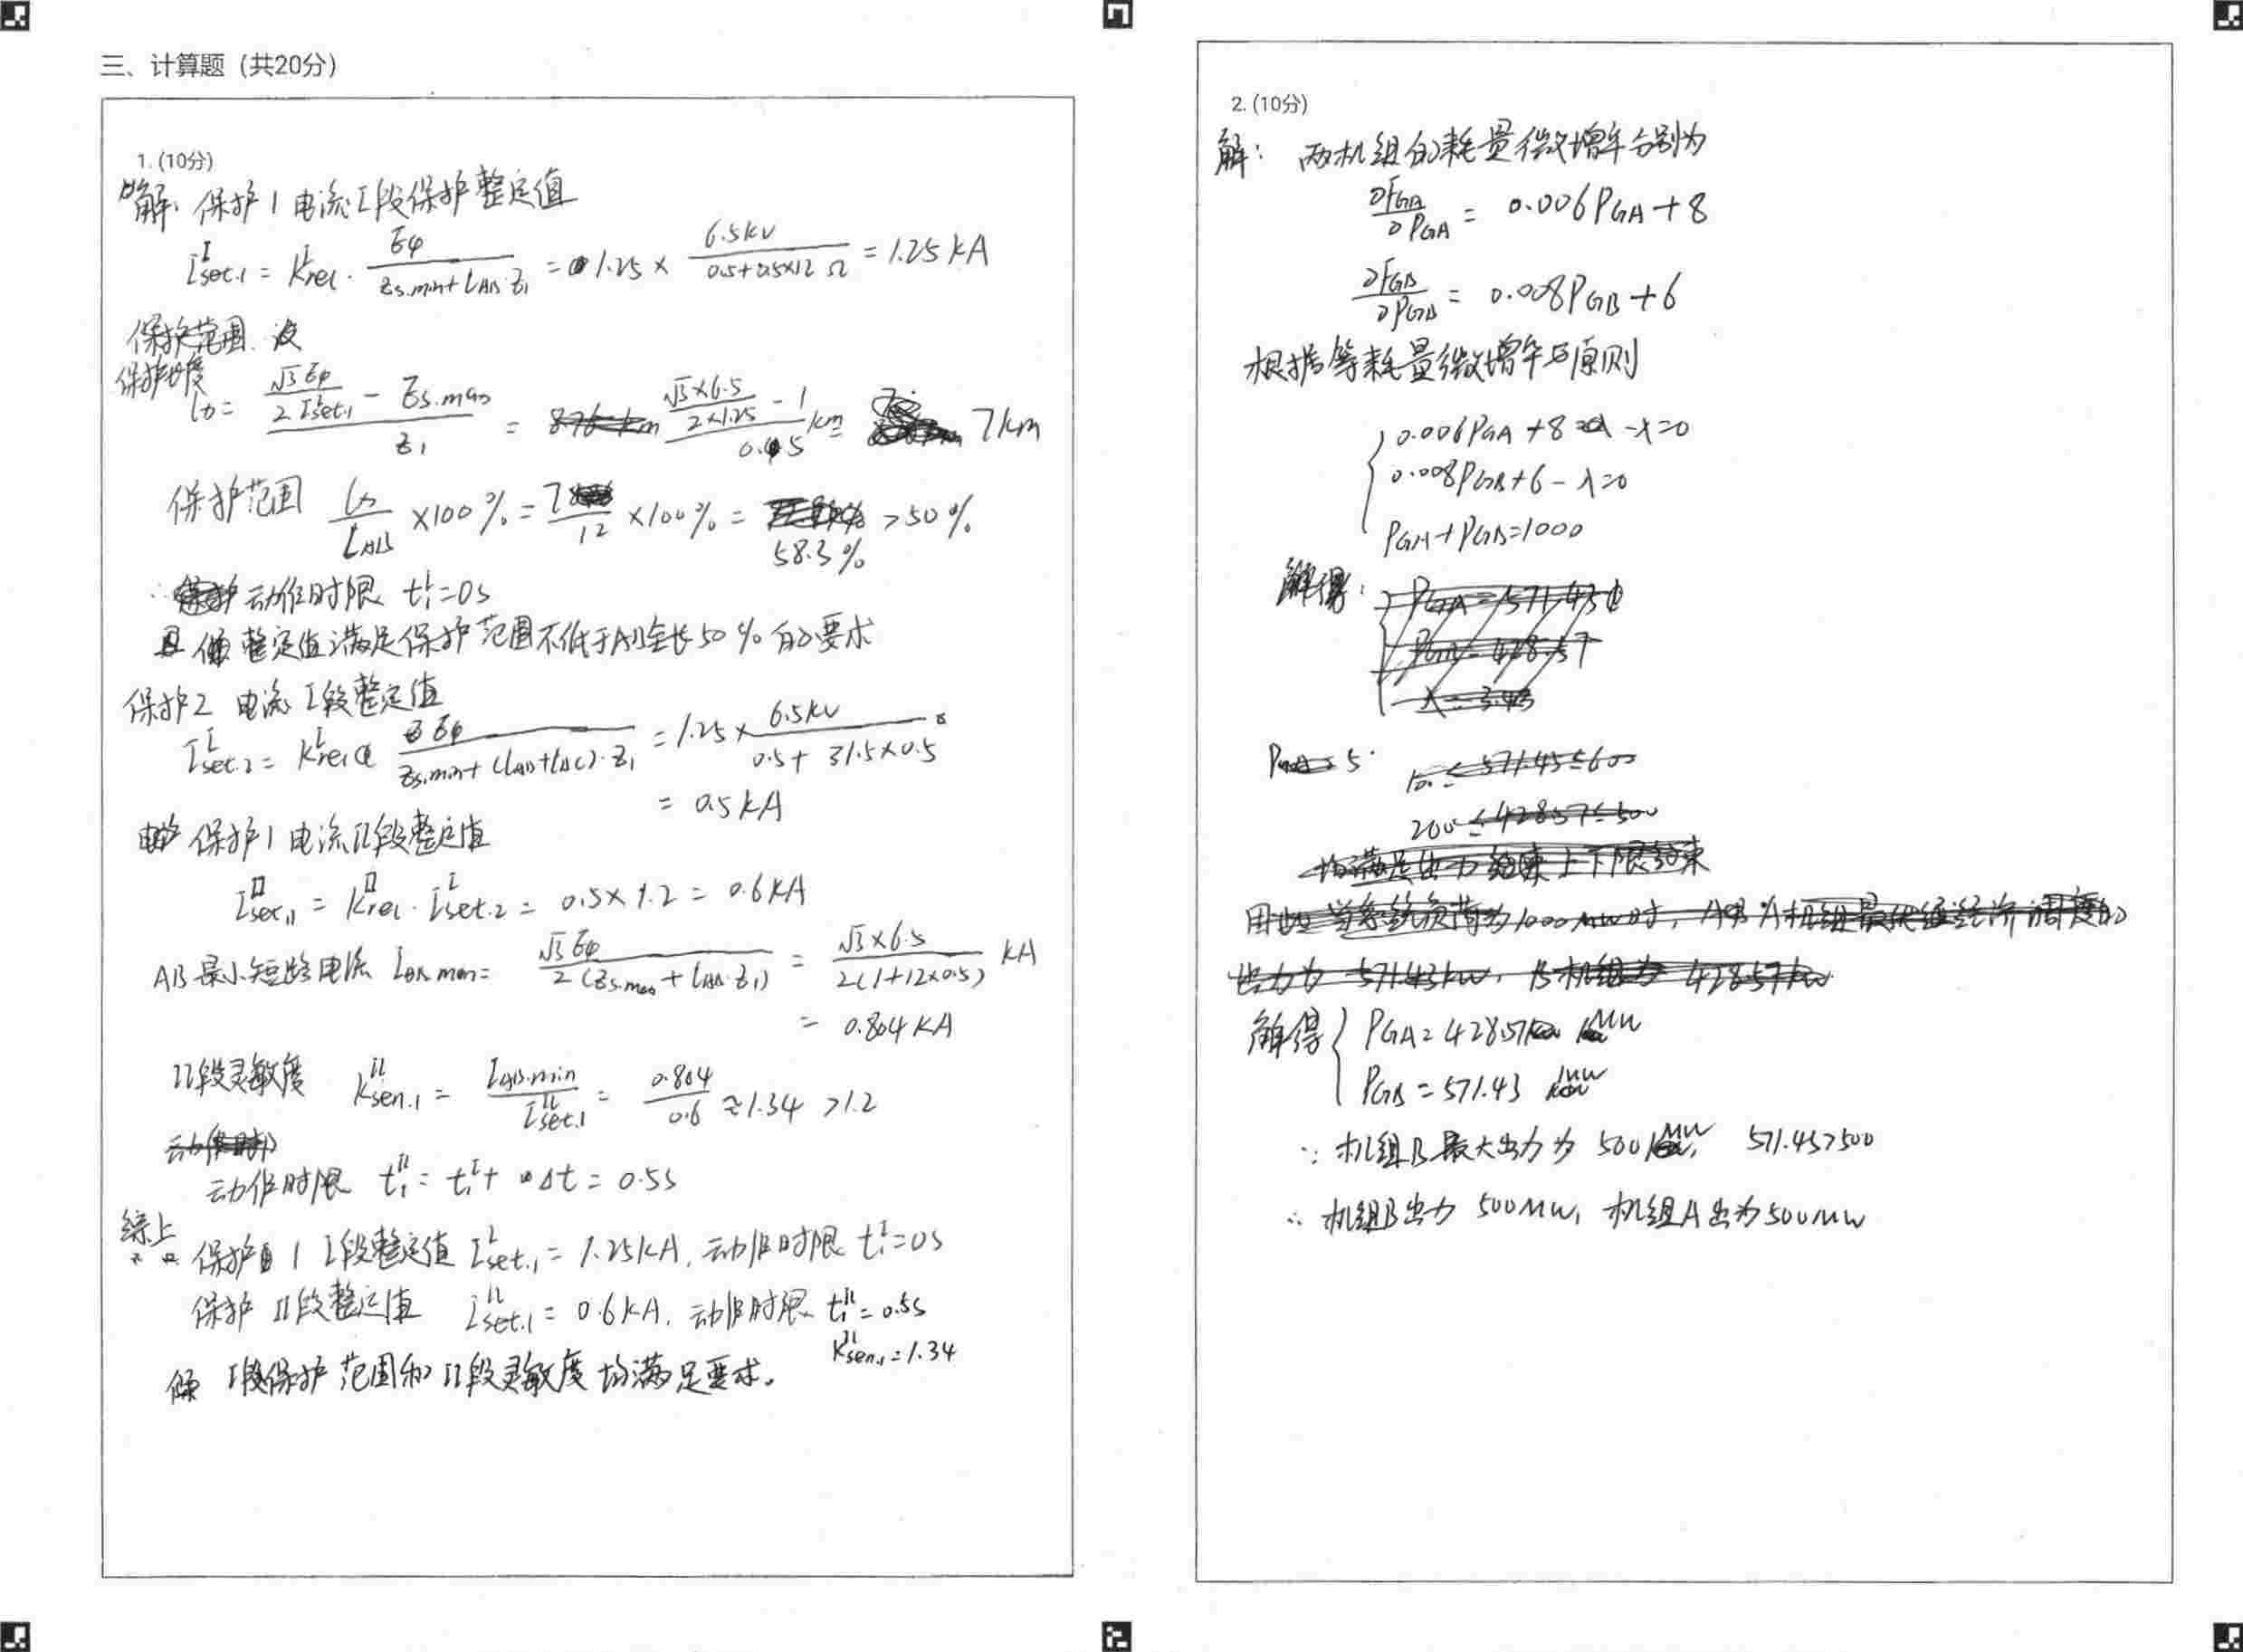 三、计算题 (共20分)
1. (10分)
解: 保护1电流I段保护整定值
I^I_set.1 = K^I_rel · Eφ / (Zs.min + L_AB·Z1) = 1.25 × 6.5kV / (0.5+0.5×12 Ω) = 1.25 kA
保护范围
保护长度
l_b = (√3Eφ / 2I^I_set.1 − Zs.max) / Z1 = (√3×6.5 / 2×1.25 − 1) / 0.5 km = 7km
保护范围 l_b / L_AB ×100% = 7 / 12 ×100% = 58.3% >50%
动作时限 t^I_1=0s
整定值满足保护范围不低于AB全长50%的要求
保护2 电流I段整定值
I^I_set.2 = K^I_rel Eφ / (Zs.min + (L_AB+L_BC)·Z1) = 1.25 × 6.5kV / (0.5 + 31.5×0.5)
= 0.5kA
保护1电流II段整定值
I^II_set.1 = K^II_rel · I^I_set.2 = 0.5×1.2 = 0.6kA
AB最小短路电流 = √3Eφ / 2(Zs.max + L_AB·Z1) = √3×6.5 / 2(1+12×0.5) KA
= 0.804KA
II段灵敏度 K^II_sen.1 = I_AB.min / I^II_set.1 = 0.804 / 0.6 ≈1.34 >1.2
动作时限 t^II_1 = t^I_1 + Δt = 0.5s
综上
保护1 I段整定值 I^I_set.1 = 1.25kA, 动作时限 t^I_1=0s
保护 II段整定值 I^II_set.1 = 0.6kA, 动作时限 t^II_1=0.5s
K^II_sen.1=1.34
I段保护范围和II段灵敏度均满足要求。
2. (10分)
解: 两机组的耗量微增率分别为
∂F_GA / ∂P_GA = 0.006P_GA+8
∂F_GB / ∂P_GB = 0.008P_GB+6
根据等耗量微增率原则
0.006P_GA+8 −λ=0
0.008P_GB+6−λ=0
P_GA+P_GB=1000
解得:
P_GA=571.43
P_GB=428.57
λ=3.43
≤571.43≤600
200≤428.57≤500
均满足出力约束上下限约束
因此当系统负荷为1000MW时,
出力为 571.43kw, B机组为 428.57kw
解得 P_GA=428.57 MW
P_GB=571.43 MW
∵ 机组B最大出力为 500MW, 571.43>500
∴ 机组B出力 500MW, 机组A出力500MW